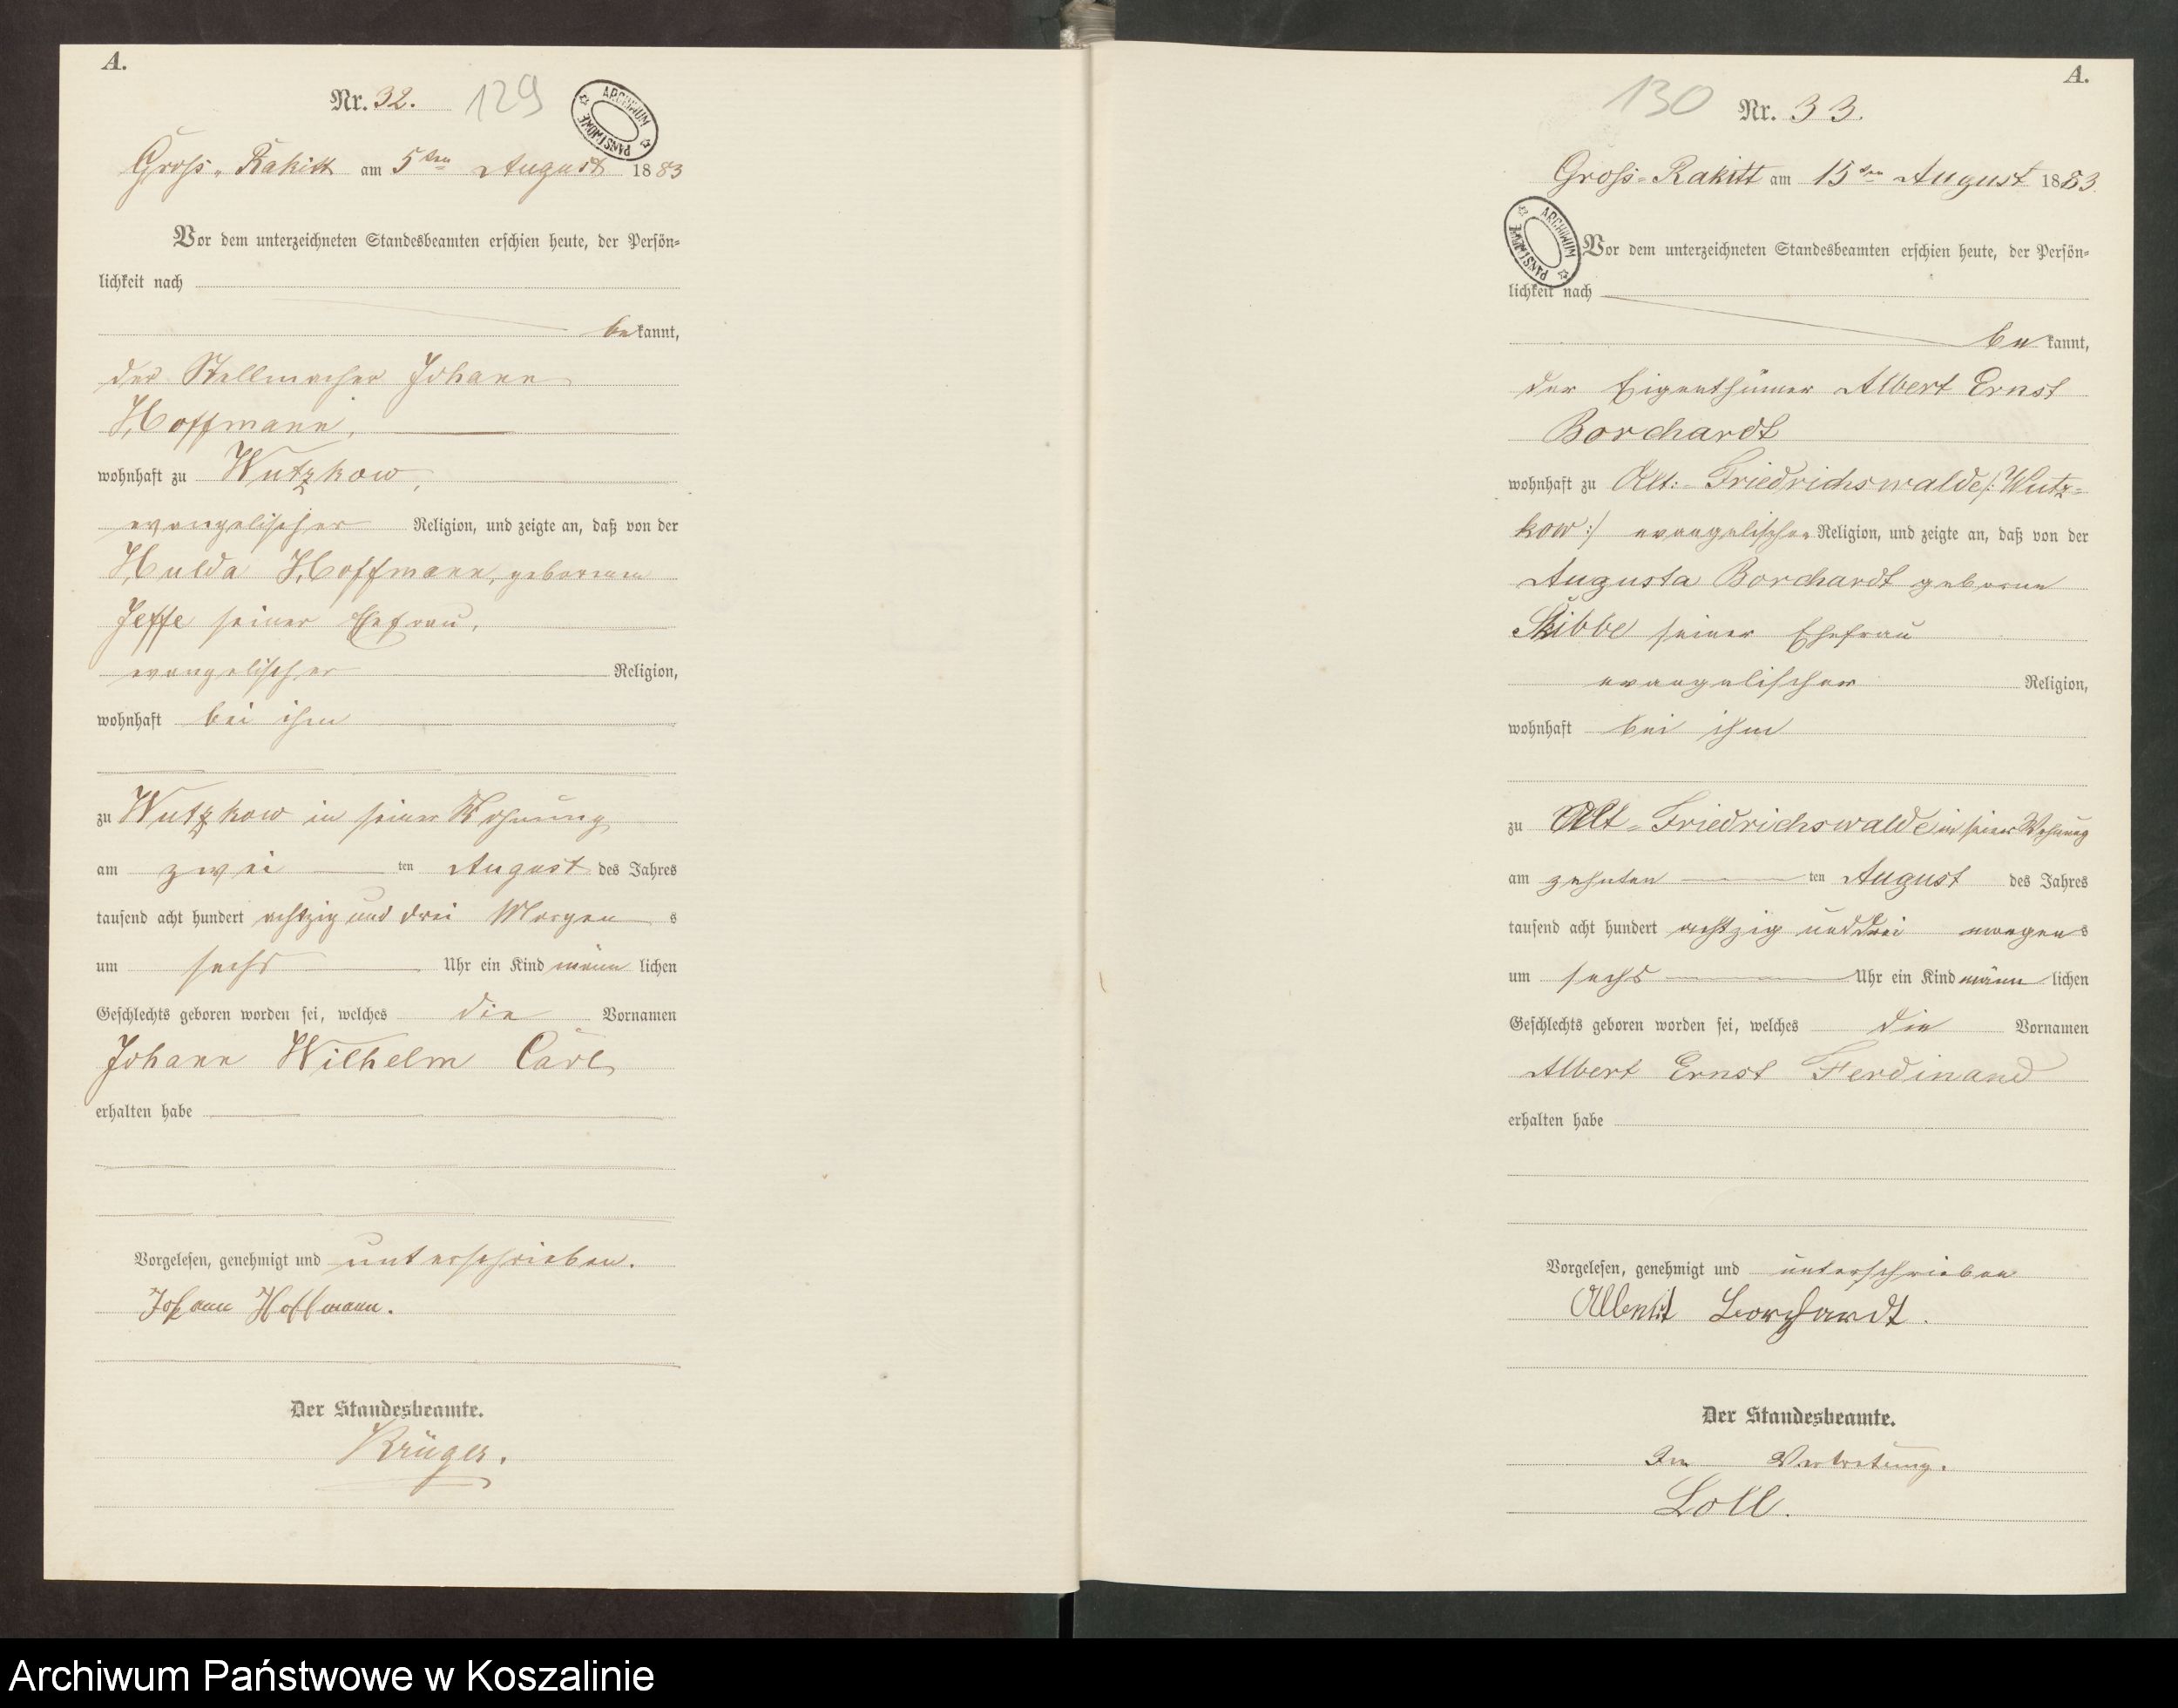 A.
Nr. 32. 129
ARCHIWUM PAŃSTWOWE
Gross-Rakitt am 5ten August 1883
Vor dem unterzeichneten Standesbeamten erschien heute, der Persön-
lichkeit nach
bekannt,
der Stellmacher Johann
Hoffmann,
wohnhaft zu Wutzkow,
evangelischer Religion, und zeigte an, daß von der
Hulda Hoffmann, geborenen
Jeffe seiner Ehefrau,
evangelischer Religion,
wohnhaft bei ihm
zu Wutzkow in seiner Wohnung
am zwei ten August des Jahres
tausend acht hundert achtzig und drei Morgen s
um sechs Uhr ein Kind männlichen
Geschlechts geboren worden sei, welches die Vornamen
Johann Wilhelm Carl
erhalten habe
Vorgelesen, genehmigt und unterschrieben.
Johann Hoffmann.
Der Standesbeamte.
Krüger.
A.
130 Nr. 33.
Gross-Rakitt am 15ten August 1883.
ARCHIWUM PAŃSTWOWE
Vor dem unterzeichneten Standesbeamten erschien heute, der Persön-
lichkeit nach
bekannt,
der Eigenthümer Albert Ernst
Borchardt
wohnhaft zu Alt:-Friedrichswalde/: Wutz-
kow:/ evangelischer Religion, und zeigte an, daß von der
Augusta Borchardt geborne
Skibbe seiner Ehefrau
evangelischer Religion,
wohnhaft bei ihm
zu Alt-Friedrichswalde in seiner Wohnung
am zehnten ten August des Jahres
tausend acht hundert achtzig und drei morgens
um sechs Uhr ein Kind männlichen
Geschlechts geboren worden sei, welches die Vornamen
Albert Ernst Ferdinand
erhalten habe
Vorgelesen, genehmigt und unterschrieben
Albert Borchardt.
Der Standesbeamte.
In Vertretung.
Loll.
Archiwum Państwowe w Koszalinie